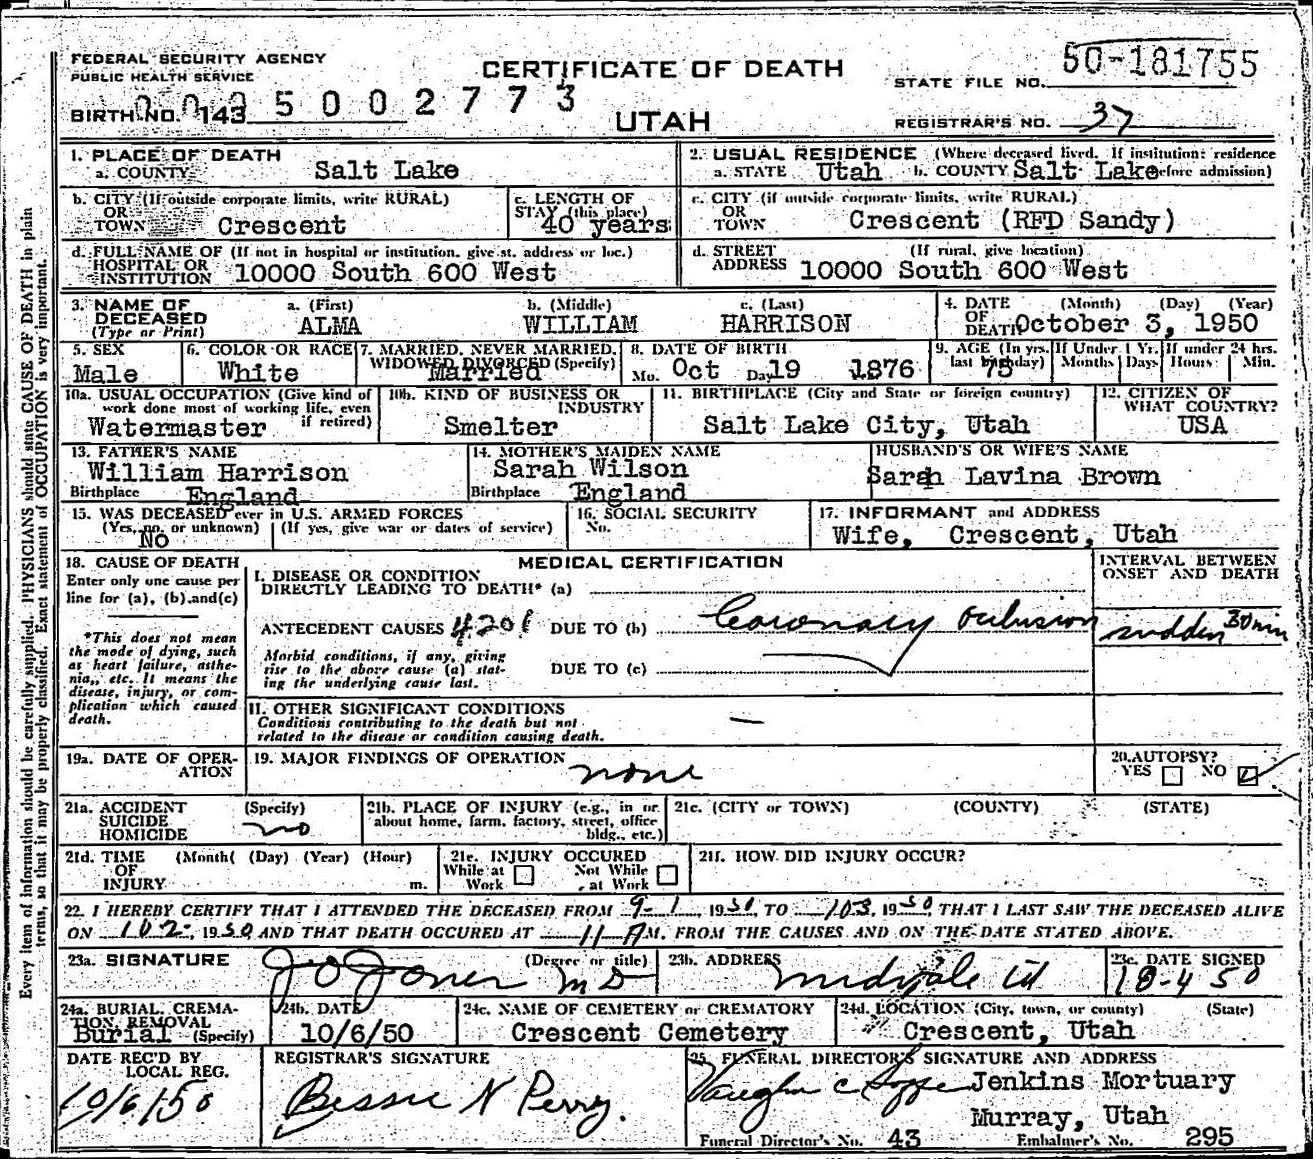 FEDERAL SECURITY AGENCY
PUBLIC HEALTH SERVICE
CERTIFICATE OF DEATH
UTAH
STATE FILE NO. 50-181755
BIRTH NO. 143 5002773
REGISTRAR'S NO. 37
1. PLACE OF DEATH
a. COUNTY Salt Lake
2. USUAL RESIDENCE (Where deceased lived. If institution: residence before admission)
a. STATE Utah b. COUNTY Salt Lake
b. CITY (If outside corporate limits, write RURAL)
OR TOWN Crescent
c. LENGTH OF STAY (this place) 40 years
c. CITY (if outside corporate limits, write RURAL)
OR TOWN Crescent (RFD Sandy)
d. FULL NAME OF (If not in hospital or institution, give st. address or loc.)
HOSPITAL OR INSTITUTION 10000 South 600 West
d. STREET ADDRESS (If rural, give location)
10000 South 600 West
3. NAME OF DECEASED (Type or Print)
a. (First) b. (Middle) c. (Last)
ALMA WILLIAM HARRISON
4. DATE OF DEATH (Month) (Day) (Year)
October 3, 1950
5. SEX
Male
6. COLOR OR RACE
White
7. MARRIED, NEVER MARRIED, WIDOWED, DIVORCED (Specify)
Married
8. DATE OF BIRTH
Mo. Oct Day 19 1876
9. AGE (In yrs. last birthday) 75
If Under 1 Yr. Months Days
If under 24 hrs. Hours Min.
10a. USUAL OCCUPATION (Give kind of work done most of working life, even if retired)
Watermaster
10b. KIND OF BUSINESS OR INDUSTRY
Smelter
11. BIRTHPLACE (City and State or foreign country)
Salt Lake City, Utah
12. CITIZEN OF WHAT COUNTRY?
USA
13. FATHER'S NAME
William Harrison
Birthplace England
14. MOTHER'S MAIDEN NAME
Sarah Wilson
Birthplace England
HUSBAND'S OR WIFE'S NAME
Sarah Lavina Brown
15. WAS DECEASED ever in U.S. ARMED FORCES
(Yes, no, or unknown) (If yes, give war or dates of service)
No
16. SOCIAL SECURITY No.
17. INFORMANT and ADDRESS
Wife, Crescent, Utah
18. CAUSE OF DEATH
Enter only one cause per line for (a), (b), and (c)
*This does not mean the mode of dying, such as heart failure, asthenia, etc. It means the disease, injury, or complication which caused death.
MEDICAL CERTIFICATION
INTERVAL BETWEEN ONSET AND DEATH
I. DISEASE OR CONDITION DIRECTLY LEADING TO DEATH* (a)
ANTECEDENT CAUSES 4201 DUE TO (b) Coronary Occlusion sudden 30 min
Morbid conditions, if any, giving rise to the above cause (a) stating the underlying cause last.
DUE TO (c)
II. OTHER SIGNIFICANT CONDITIONS
Conditions contributing to the death but not related to the disease or condition causing death.
—
19a. DATE OF OPERATION
19. MAJOR FINDINGS OF OPERATION
none
20. AUTOPSY?
YES NO
21a. ACCIDENT SUICIDE HOMICIDE (Specify)
no
21b. PLACE OF INJURY (e.g., in or about home, farm, factory, street, office bldg., etc.)
21c. (CITY or TOWN) (COUNTY) (STATE)
21d. TIME OF INJURY (Month( (Day) (Year) (Hour) m.
21e. INJURY OCCURED
While at Work Not While at Work
21f. HOW DID INJURY OCCUR?
22. I HEREBY CERTIFY THAT I ATTENDED THE DECEASED FROM 9-1, 1950, TO 10 3, 1950, THAT I LAST SAW THE DECEASED ALIVE
ON 10 2, 1950 AND THAT DEATH OCCURED AT 11 A M. FROM THE CAUSES AND ON THE DATE STATED ABOVE.
23a. SIGNATURE (Degree or title)
J O Jones M D
23b. ADDRESS
Midvale Ut
23c. DATE SIGNED
10-4 50
24a. BURIAL, CREMATION, REMOVAL (Specify)
Burial
24b. DATE
10/6/50
24c. NAME OF CEMETERY or CREMATORY
Crescent Cemetery
24d. LOCATION (City, town, or county) (State)
Crescent, Utah
DATE REC'D BY LOCAL REG.
10/6/50
REGISTRAR'S SIGNATURE
Bessie N Perry.
25. FUNERAL DIRECTOR'S SIGNATURE AND ADDRESS
Vaughn C Jenkins Mortuary
Murray, Utah
Funeral Director's No. 43 Embalmer's No. 295
Every item of information should be carefully supplied. PHYSICIANS should state CAUSE OF DEATH in plain
terms, so that it may be properly classified. Exact statement of OCCUPATION is very important.